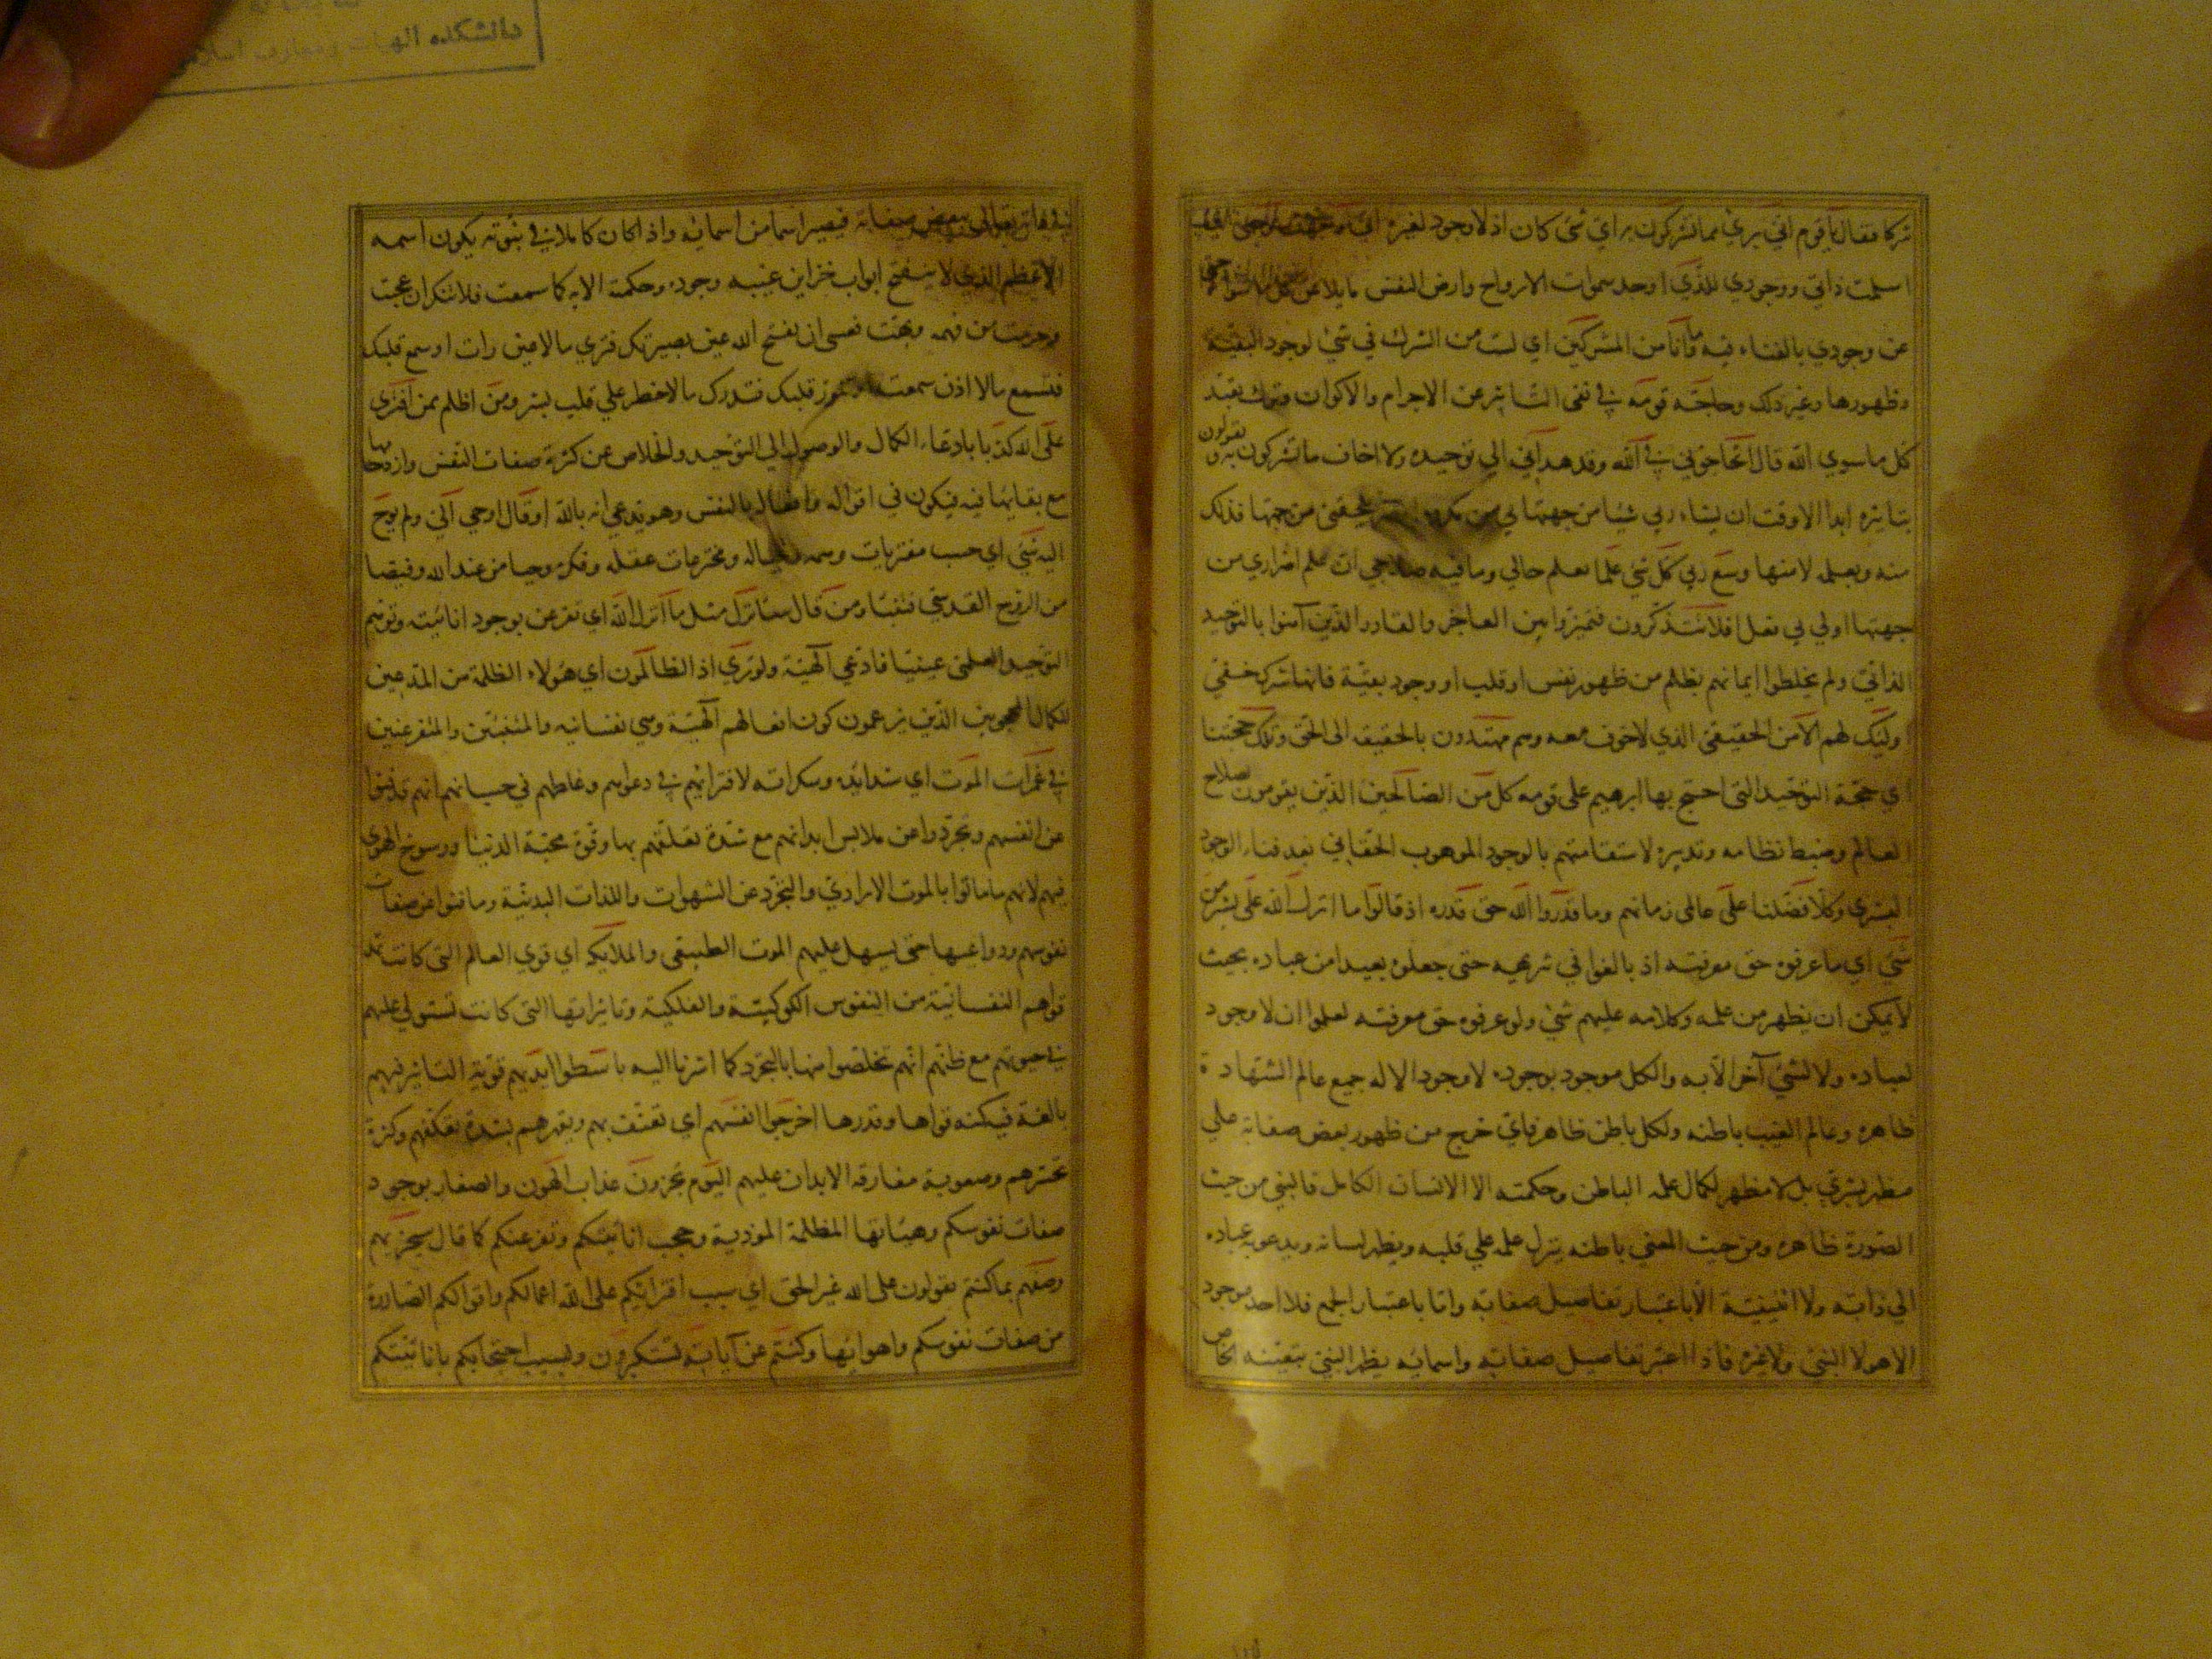 شركا فقال يا قوم اني بريء مما تشركون براي شيء كان اذ لا وجود لغيره اني وجهت وجهي اي
اسلمت ذاتي ووجودي للذي اوجد سموات الارواح وارض النفس مايلا عن كل ما سواه حتى
عن وجودي بالفناء فيه وما انا من المشركين اي لست من الشرك في شيء لوجود البقية
وظهورها وغير ذلك وحاجه قومه في نفى التاثير عن الاجرام والاكوان وترك تعبد
كل ما سوي الله قال اتحاجوني في الله وقد هداني الي توحيده ولا اخاف ما تشركون به وتقولون
بتاثيره ابدا الا وقت ان يشاء ربي شيئا من جهتها بي من يلحقني من جهتها فذلك
منه وبعلمه لا منها وسع ربي كل شيء علما يعلم حالي وما فيه صلاحي ان علم اضراري من
جهتها اولي بي فعل افلا تتذكرون فتميزوا بين العاجز والقادر الذين آمنوا بالتوحيد
الذاتي ولم يخلطوا ايمانهم بظلم من ظهور نفس او قلب او وجود بقية فانها شرك خفي
اوليك لهم الامن الحقيقي الذي لا خوف معه وهم مهتدون بالحقيقة الى الحق وتلك حجتنا
اي حجة التوحيد التي احتج بها ابرهيم على قومه كل من الصالحين الذين يقومون بصلاح
العالم وضبط نظامه وتدبيره لاستقامتهم بالوجود الموهوب الحقاني بعد فناء الوجود
البشري وكلا فضلنا على عالمي زمانهم وما قدروا الله حق قدره اذ قالوا ما انزل الله على بشر من
شيء اي ما عرفوه حق معرفته اذ بالغوا في تنزيهه حتى جعلوه بعيدا من عباده بحيث
لا يمكن ان يظهر من علمه وكلامه عليهم شيء ولو عرفوه حق معرفته لعلموا ان لا وجود
لعباده ولا لشيء آخر الا به والكل موجود بوجوده لا وجود الا له جميع عالم الشهادة
ظاهره وعالم الغيب باطنه ولكل باطن ظاهر فاي خرج من ظهور بعض صفاته علي
مظهر بشري بل لا مظهر لكمال علمه الباطن وحكمته الا الانسان الكامل فالنبي من حيث
الصورة ظاهره ومن حيث المعني باطنه ينزل علمه علي قلبه ويظهر لسانه ويدعو به عباده
الي ذاته ولا اثنينية الا باعتبار تفاصيل صفاته واما باعتبار الجمع فلا احد موجود
الا هو لا النبي ولا غيره فاذا اعتبر تفاصيل صفاته واسمائه يظهر النبي بتعينه الخاص
في ذاته تعالى ببعض صفاته فيصير اسما من اسمائه واذا كان كاملا في نبوته يكون اسمه
الاعظم الذي لا ينفتح ابواب خزاين غيبه وجوده وحكمته الا به كما سمعت فلا تنكر ان عجت
وحرمت من فهمه وبهت فعسى ان يفتح الله عين بصيرتك فتري ما لا عين رات او سمع قلبك
فتسمع ما لا اذن سمعت قلبك فتدرك ما لا خطر علي قلب بشر ومن اظلم ممن افترى
على الله كذبا بادعاء الكمال والوصول الي التوحيد والخلاص عن كثرة صفات النفس وازدحامها
مع بقايها فيه فيكون في اقواله وافعاله بالنفس وهو يدعي انه بالله او قال اوحي الي ولم يوح
اليه شيء اي حسب مفتريات وهمه وخياله ومخترعات عقله وفكره وحيا من عند الله وفيضا
من الروح القدسي فتنبا ومن قال سانزل مثل ما انزل الله اي تفرعن بوجود انائيته وتوهم
التوحيد العلمي عينيا فادعي الهية ولو تري اذ الظالمون اي هؤلاء الظلمة من المدعين
للكمال المحجوبين الذين يزعمون كون افعالهم آلهية وهي نفسانيه والمتنبئين والمتفرعنين
في غمرات الموت اي شدائده وسكراته لافترائهم في دعوهم وغلطهم في حسبانهم انهم قد فنوا
عن انفسهم وتجردوا عن ملابس ابدانهم مع شدة تعلقهم بها وقوة محبة الدنيا ورسوخ الهوي
فيهم لانهم ما ماتوا بالموت الارادي والتجرد عن الشهوات واللذات البدنية وما فنوا عن صفات
نفوسهم ودواعيها حتى يسهل عليهم الموت الطبيعي والملايكة اي قوي العالم التي كانت تمد
قواهم النفسانية من النفوس الكوكبية والفلكية وتاثيراتها التي كانت تستولي عليهم
في حيوتهم مع ظنهم انهم تخلصوا منها بالتجرد كما اشرنا اليه باسطوا ايديهم قوية التاثير فيهم
بالغة فيكنه قواها وقدرها اخرجوا انفسهم اي تعنف بهم ويقهرهم بشدة تعلقهم وكثرة
تحسرهم وصعوبة مفارقه الابدان عليهم اليوم تجزون عذاب الهون والصغار بوجود
صفات نفوسكم وهيئاتها المظلمة الموذية وحجب انائيتكم وتفرعنكم كما قال سيجزيهم
وصفهم بما كنتم تقولون على الله غير الحق اي سبب افترائكم على الله اعمالكم واقوالكم الصادرة
من صفات نفوسكم واهوائها وكنتم عن آياته تستكبرون وبسبب احتجابكم بانائيتكم
دانشكده الهيات ومعارف اسلامي